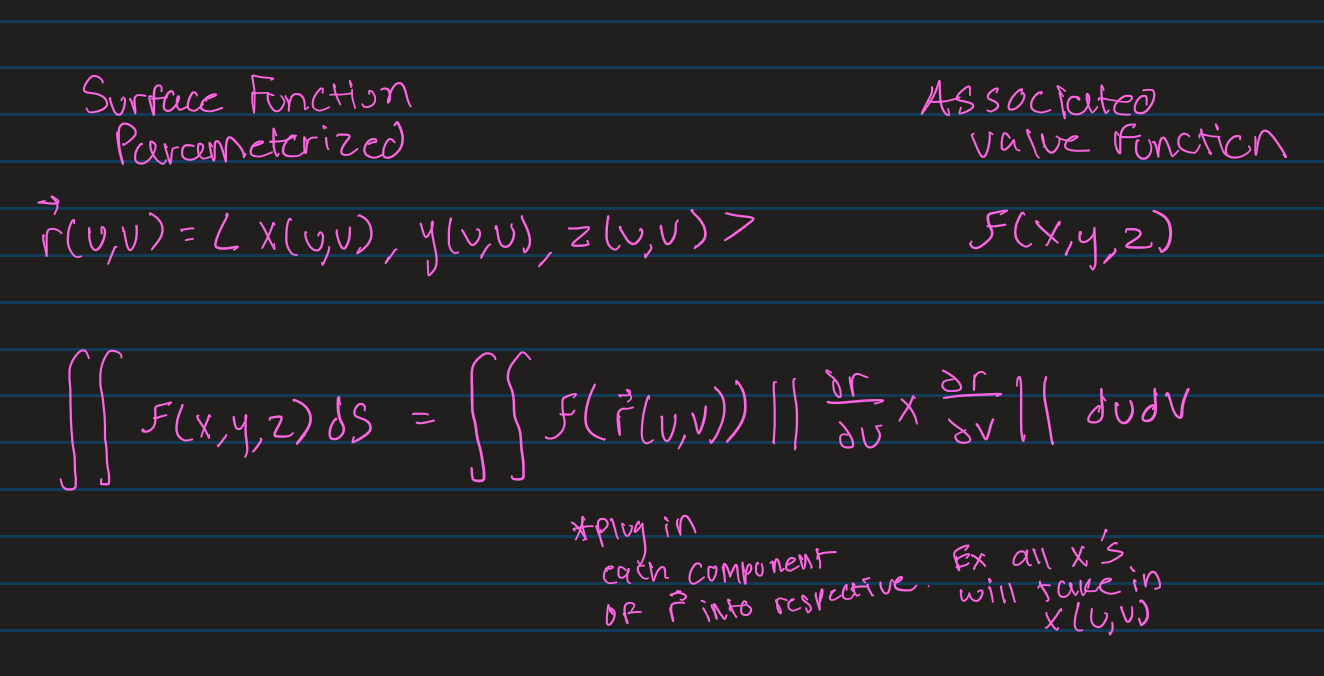 Surface Function
Parameterized
Associated
value function
r⃗(u,v) = < x(u,v), y(u,v), z(u,v) >
f(x,y,z)
∬ f(x,y,z) dS = ∬ f(r⃗(u,v)) || ∂r/∂u × ∂r/∂v || du dv
*plug in
each component
of r⃗ into respective.
Ex all x's
will take in
x(u,v)